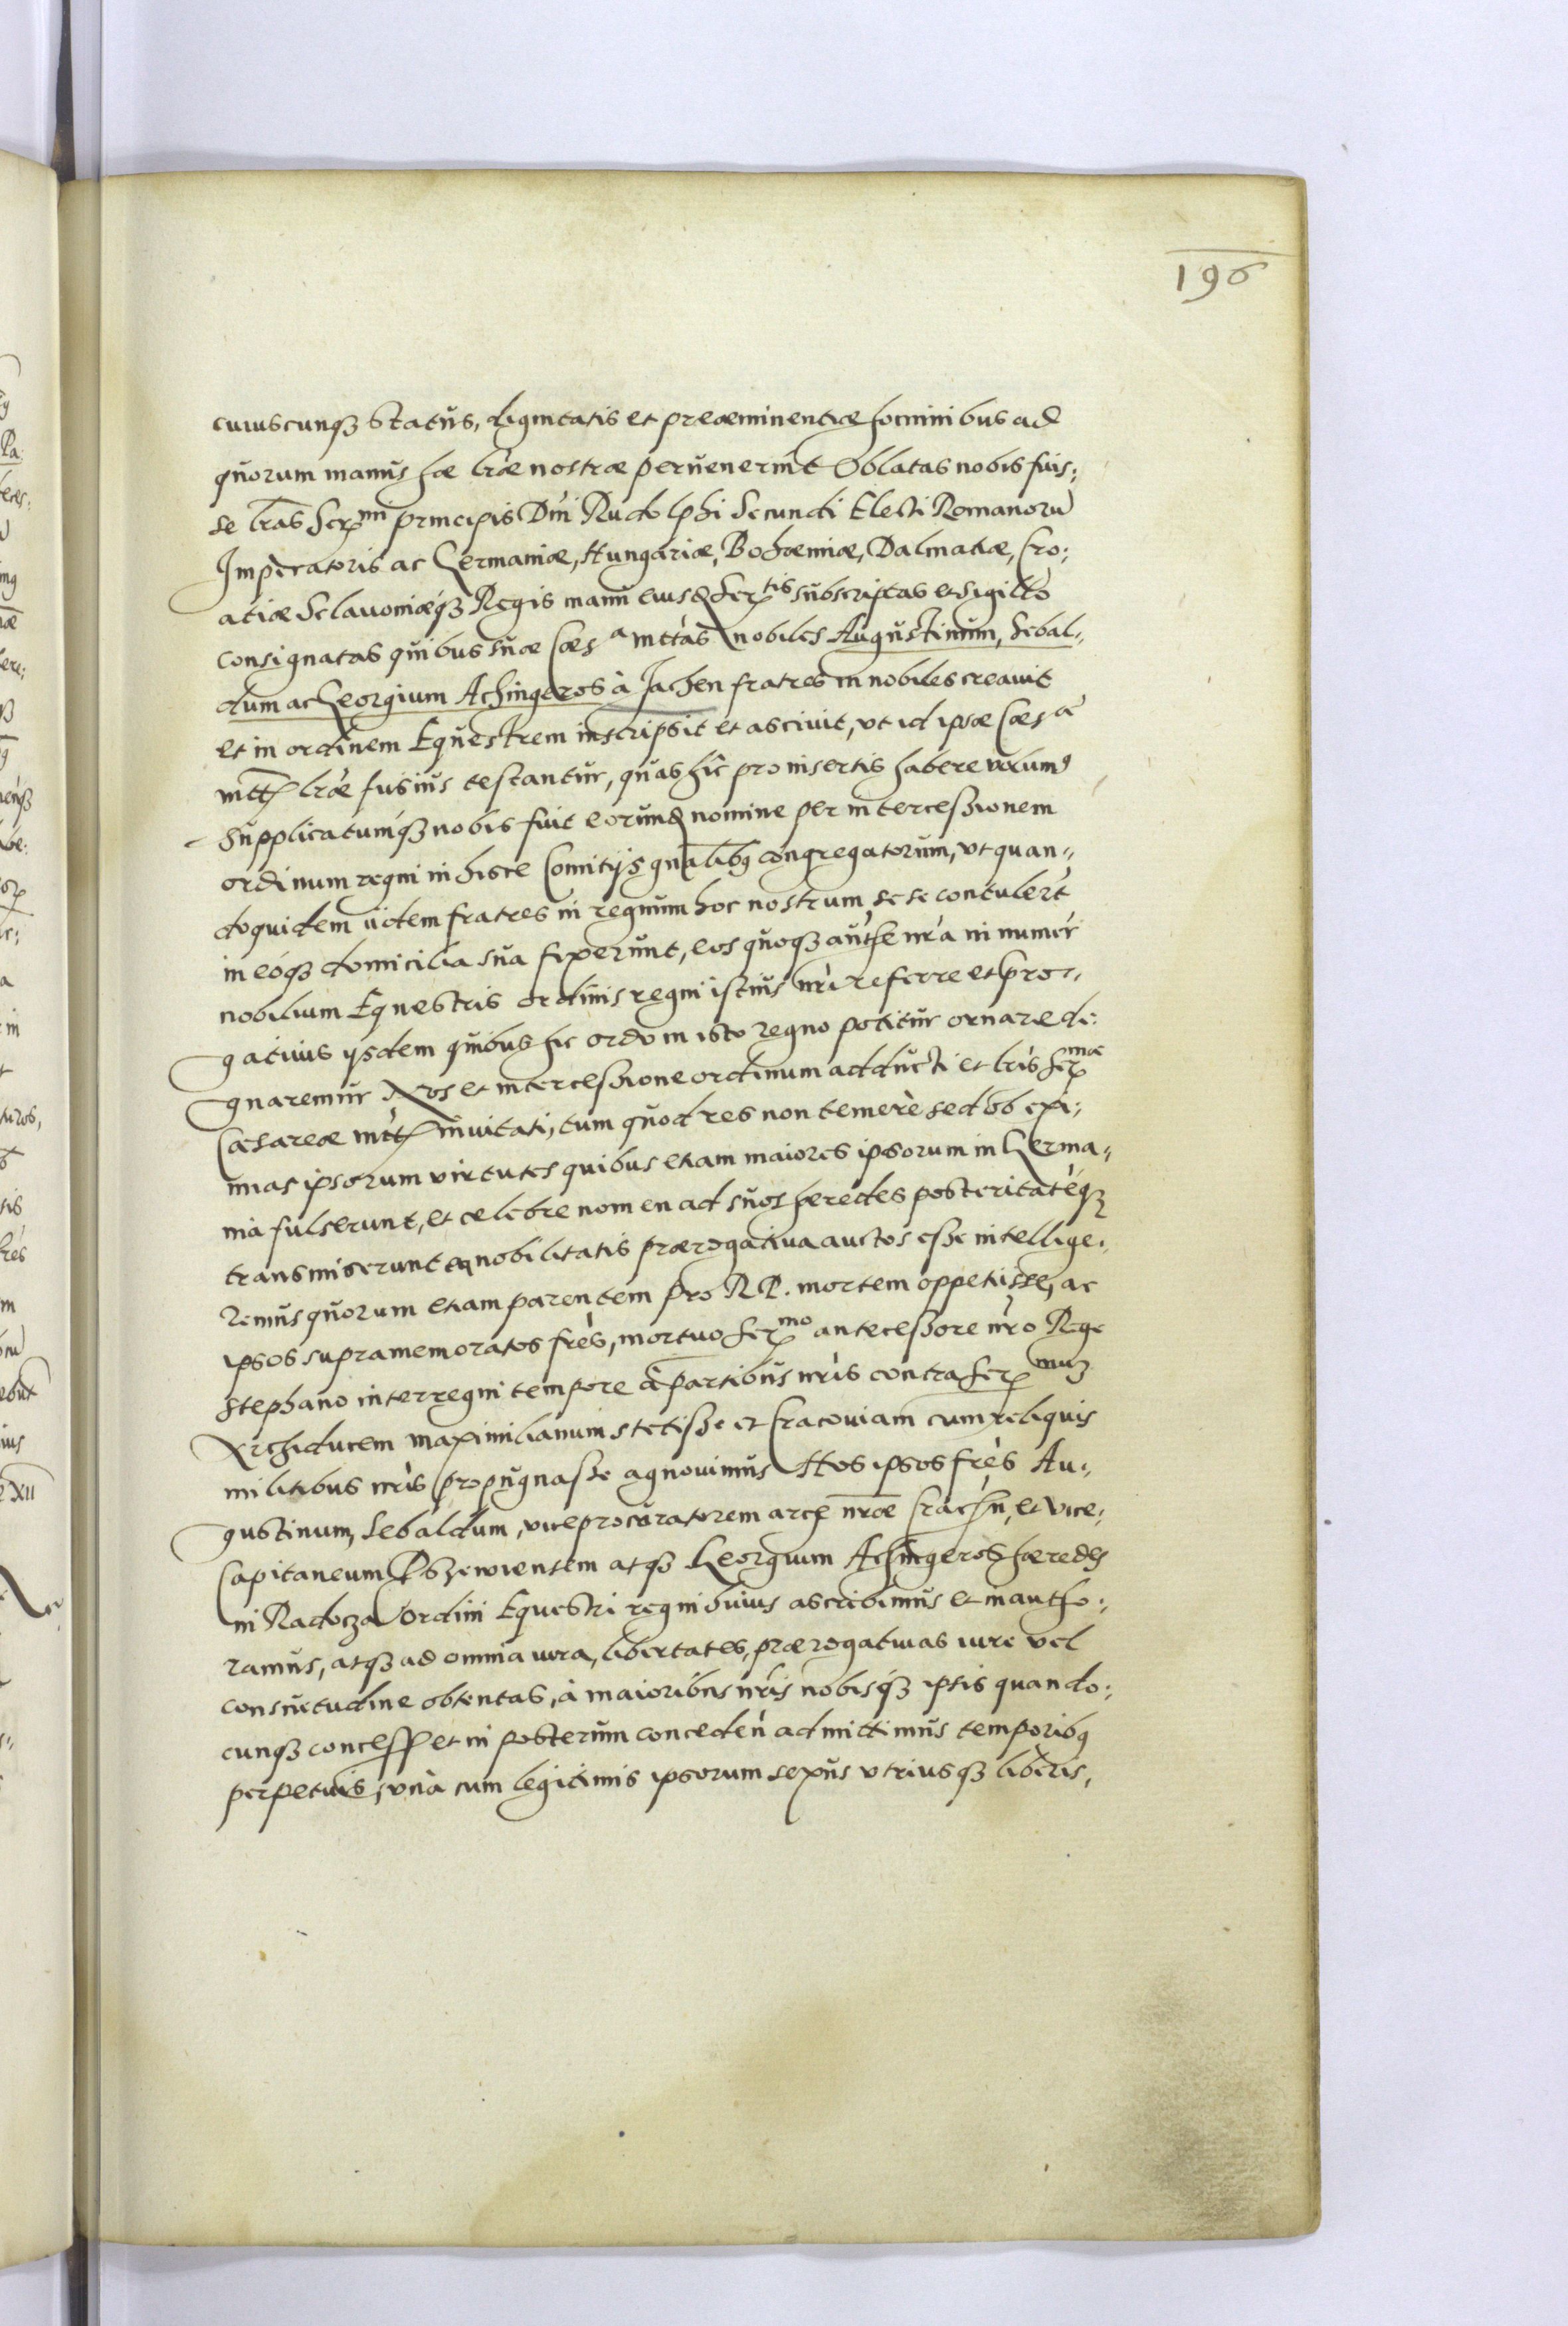 196
cuiuscunqȝ status, dignitatis et præeminentiæ hominibus ad
quorum manus hæ lr̃æ nostræ peruenerint Oblatas nobis fuis:
se lr̃as Serᵐⁱ principis Dn̄i Rudolphi Secundi Electi Romanorū
Imperatoris ac Germaniæ, Hungariæ, Bohæmiæ, Dalmatiæ, Cro:
atiæ Sclauoniæqȝ Regis manu eiusd Serᵗⁱˢ subscriptas et sigillo
consignatas quibus suæ Cæsᵃ mttas nobiles Augustinum, Sebal„
dum ac Georgium Achingeros à Jachen fratres in nobiles creauit
et in ordinem Equestrem inscripsit et asciuit, vt id ipsæ Cæsᵃ
mttis lr̃æ fusius testantur, quas hic pro insertis habere volumꝰ
Supplicatumqȝ nobis fuit eorund nomine per intercessionem
ordinum regni in hisce Comitijs gn̄alibꝰ congregatorum, vt quan„
doquidem iidem fratres in regnum hoc nostrum sese contulert
in eoqȝ domicilia sua fixerunt, eos quoqȝ auth̄e nr̃a in numer
nobilium Equestris ordinis regni istius nr̃i referre et prer„
gatiuis ijsdem quibus hic ordo in isto regno potitur ornare di:
gnaremur Nos et intercessione ordinum adducti et lr̃is Serᵐᵃᵉ
Cæsareæ mttis inuitati, tum quod res non temerè sed ob exi:
mias ipsorum virtutes quibus etiam maiores ipsorum in Germa„
nia fulserunt, et celebre nomen ad suos hæredes posteritatēqȝ
transmiserunt eqȝ nobilitatis prærogatiua auctos esse intellige„
remus quorum etiam parentem pro RP. mortem oppetisse, ac
ipsos supramemoratos fres, mortuo Serᵐᵒ antecessore nr̃o Rege
Stephano interregni tempore à partibus nr̃is contra Serᵐᵘᵐ
Archiducem Maximilianum stetisse et Cracouiam cum reliquis
militibus nr̃is propugnasse agnouimus Hos ipsos fres Au„
gustinum, Sebaldum, viceprocuratorem arcis nr̃æ Cracn̄, et vice:
Capitaneum Rszewientem atqȝ Georgium Achingeros hæredes
in Radocza Ordini Equestri regni huius ascribimus et inautho:
ramus, atqȝ ad omnia iura, libertates, prærogatiuas iure vel
consuetudine obtentas, à maioribus nr̃is nobisqȝ ipsis quando:
cunqȝ concess et in posterum conceden̄ admittimus temporibꝰ
perpetuis, vnà cum legitimis ipsorum sexus vtriusqȝ liberis,